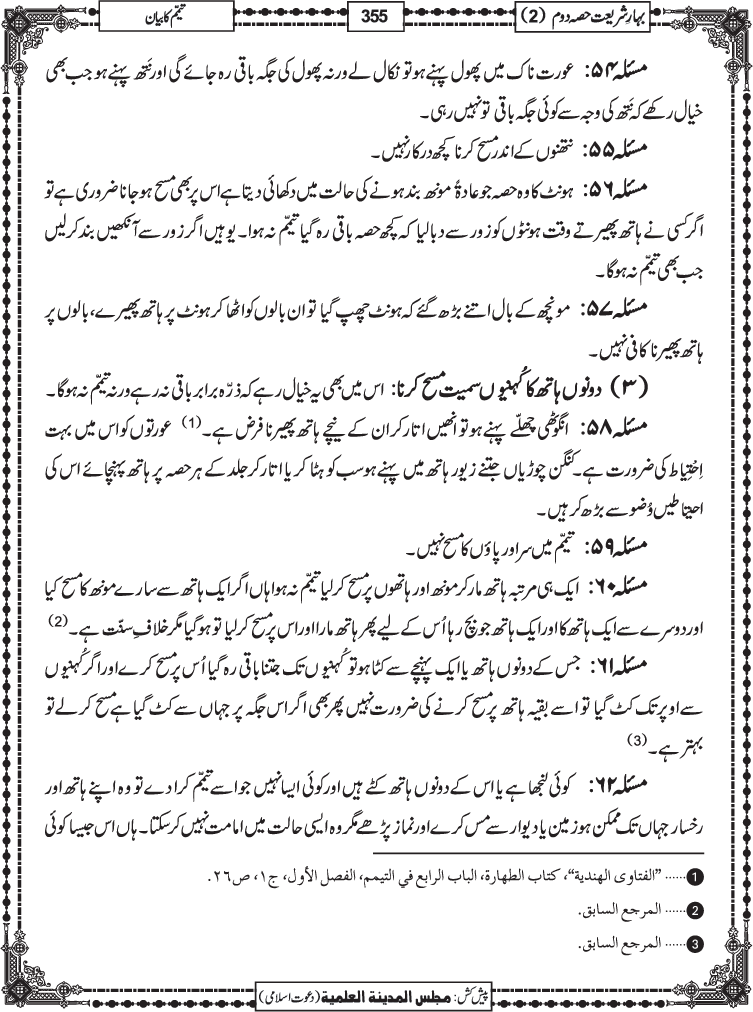 بہارِ شریعت حصہ دوم (2)
355
تیمّم کا بیان
مسئلہ ۵۴: عورت ناک میں پھول پہنے ہو تو نکال لے ورنہ پھول کی جگہ باقی رہ جائے گی اور نَتھ پہنے ہو جب بھی
خیال رکھے کہ نَتھ کی وجہ سے کوئی جگہ باقی تو نہیں رہی۔
مسئلہ ۵۵: نتھنوں کے اندر مسح کرنا کچھ درکار نہیں۔
مسئلہ ۵۶: ہونٹ کا وہ حصہ جو عادۃً مونھ بند ہونے کی حالت میں دکھائی دیتا ہے اس پر بھی مسح ہو جانا ضروری ہے تو
اگر کسی نے ہاتھ پھیرتے وقت ہونٹوں کو زور سے دبا لیا کہ کچھ حصہ باقی رہ گیا تیمّم نہ ہوا۔ یوہیں اگر زور سے آنکھیں بند کر لیں
جب بھی تیمّم نہ ہوگا۔
مسئلہ ۵۷: مونچھ کے بال اتنے بڑھ گئے کہ ہونٹ چھپ گیا تو ان بالوں کو اٹھا کر ہونٹ پر ہاتھ پھیرے، بالوں پر
ہاتھ پھیرنا کافی نہیں۔
(۳) دونوں ہاتھ کا کُہنیوں سمیت مسح کرنا: اس میں بھی یہ خیال رہے کہ ذرّہ برابر باقی نہ رہے ورنہ تیمّم نہ ہوگا۔
مسئلہ ۵۸: انگوٹھی چھلّے پہنے ہو تو انھیں اتار کر ان کے نیچے ہاتھ پھیرنا فرض ہے۔(1) عورتوں کو اس میں بہت
اِحْتِیاط کی ضرورت ہے۔ کنگن چوڑیاں جتنے زیور ہاتھ میں پہنے ہو سب کو ہٹا کر یا اتار کر جلد کے ہر حصہ پر ہاتھ پہنچائے اس کی
احتیاطیں وُضو سے بڑھ کر ہیں۔
مسئلہ ۵۹: تیمّم میں سر اور پاؤں کا مسح نہیں۔
مسئلہ ۶۰: ایک ہی مرتبہ ہاتھ مار کر مونھ اور ہاتھوں پر مسح کر لیا تیمّم نہ ہوا ہاں اگر ایک ہاتھ سے سارے مونھ کا مسح کیا
اور دوسرے سے ایک ہاتھ کا اور ایک ہاتھ جو بچ رہا اُس کے لیے پھر ہاتھ مارا اور اس پر مسح کر لیا تو ہو گیا مگر خلافِ سنّت ہے۔(2)
مسئلہ ۶۱: جس کے دونوں ہاتھ یا ایک پہنچے سے کٹا ہو تو کُہنیوں تک جتنا باقی رہ گیا اُس پر مسح کرے اور اگر کُہنیوں
سے اوپر تک کٹ گیا تو اسے بقیہ ہاتھ پر مسح کرنے کی ضرورت نہیں پھر بھی اگر اس جگہ پر جہاں سے کٹ گیا ہے مسح کر لے تو
بہتر ہے۔(3)
مسئلہ ۶۲: کوئی لنجھا ہے یا اس کے دونوں ہاتھ کٹے ہیں اور کوئی ایسا نہیں جو اسے تیمّم کرا دے تو وہ اپنے ہاتھ اور
رخسار جہاں تک ممکن ہو زمین یا دیوار سے مس کرے اور نماز پڑھے مگر وہ ایسی حالت میں امامت نہیں کر سکتا۔ ہاں اس جیسا کوئی
1 ...... "الفتاوی الھندیة"، کتاب الطھارة، الباب الرابع في التیمم، الفصل الأول، ج١، ص٢٦.
2 ...... المرجع السابق.
3 ...... المرجع السابق.
پیش کش: مجلس المدینة العلمیة (دعوت اسلامی)